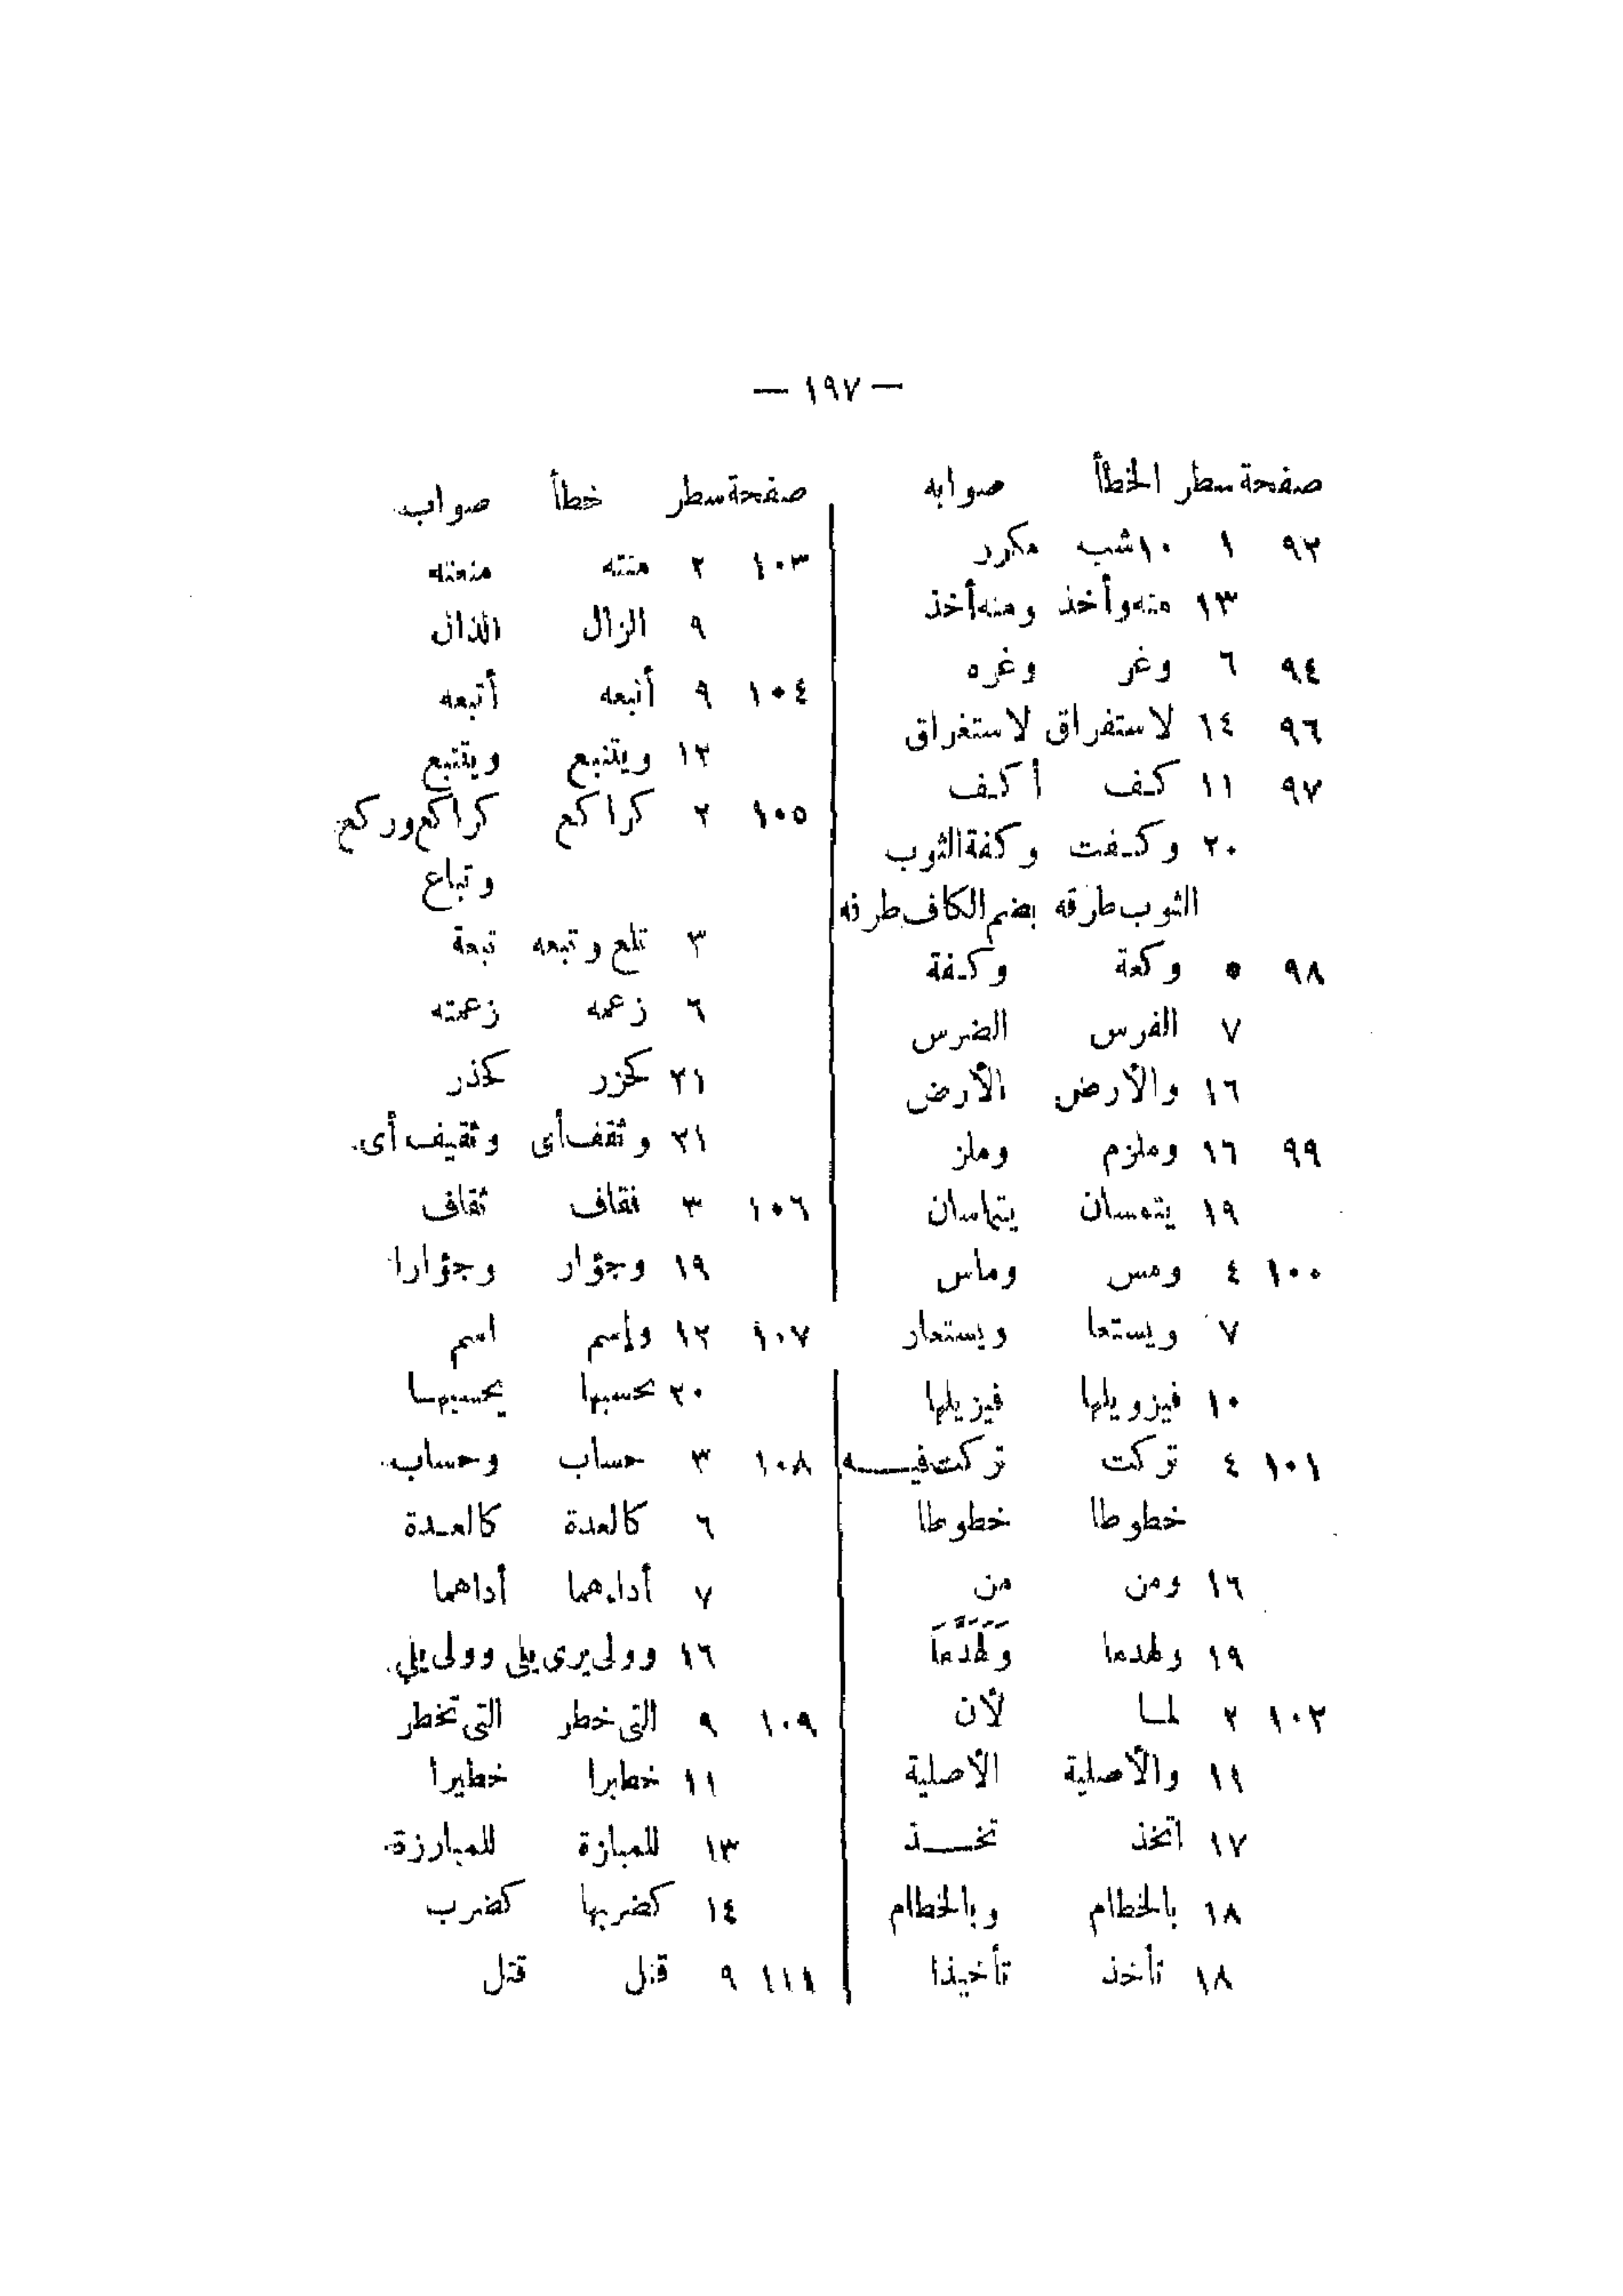 — ١٩٧ —
صفحة سطر الخطأ صوابه
٩٣ ١ ١٠شب مكرر
١٣ منه وأخذ ومنه أخذ
٩٤ ٦ وغر وغره
٩٦ ١٤ لاستفراق لاستغراق
٩٧ ١١ كف أكف
٢٠ وكفت وكفة الثوب
الثوب طرقه بضم الكاف طرفه
٩٨ ٥ وكعة وكفة
٧ الفرس الضرس
١٦ والأرض الأرض
٩٩ ١٦ وملزم وملز
١٩ يتمسان يتماسان
١٠٠ ٤ ومس وماس
٧ ويستعا ويستعار
١٠ فيزويلها فيزيلها
١٠١ ٤ تركت تركت فيه
خطوطا خطوطا
١٦ ومن من
١٩ ولهدما وَلَهَدَّمَا
١٠٢ ٢ لما لأن
١١ والأصلية الأصلية
١٧ اتخذ تخذ
١٨ بالخطام وبالخطام
١٨ تأخذ تأخيذا
صفحة سطر خطأ صواب
١٠٣ ٢ منته منعته
٩ الزال الذال
١٠٤ ٩ أنبعه أتبعه
١٢ ويتنبع ويتتبع
١٠٥ ٢ كراكع كراكع وركع
وتباع
٣ تلع وتبعه تبعة
٦ زعمه زعمته
٢١ كحزر كحذر
٢١ وثقف أى وثقيف أى
١٠٦ ٣ نقاف ثقاف
١٩ وجؤار وجؤارا
١٠٧ ١٢ وإسم اسم
٢٠ بحسبها يحسبها
١٠٨ ٣ حساب وحساب
٦ كالعدة كالعدة
٧ أداءهما أداهما
١٦ وولى يرى يلى وولى يلي
١٠٩ ٩ التى خطر التى تخطر
١١ خطابرا خطيرا
١٣ للمبازة للمبارزة
١٤ كضربها كضرب
١١١ ٩ قنل قتل